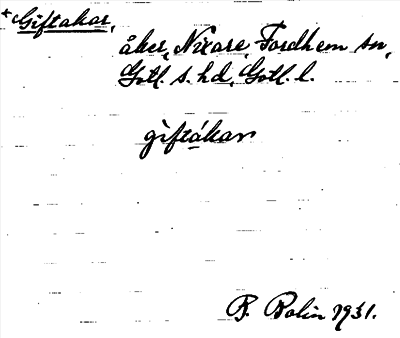 * Giftakar,
åker, Nixare, Fardhem sn,
Gotl. s. hd, Gotl. l.
giftákar
B. Bolin 1931.